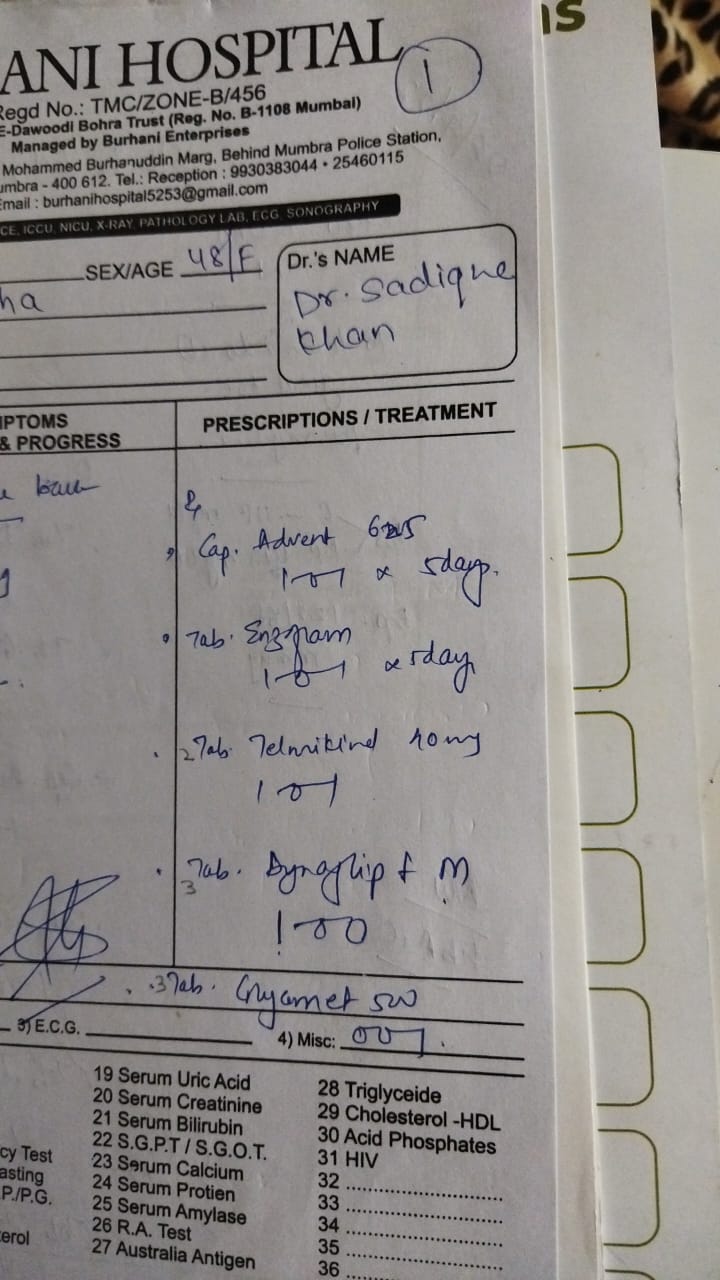 ANI HOSPITAL
1
Regd No.: TMC/ZONE-B/456
E-Dawoodi Bohra Trust (Reg. No. B-1108 Mumbai)
Managed by Burhani Enterprises
Mohammed Burhanuddin Marg, Behind Mumbra Police Station,
umbra - 400 612. Tel.: Reception : 9930383044 • 25460115
Email : burhanihospital5253@gmail.com
CE, ICCU, NICU, X-RAY, PATHOLOGY LAB, ECG, SONOGRAPHY
SEX/AGE 48/F
Dr.'s NAME
ha
Dr. Sadique
Khan
PTOMS
& PROGRESS
PRESCRIPTIONS / TREATMENT
Cap. Advent 625
101 x 5days.
Tab.
101 x 5day
2 Tab. Telmikind
101
3 Tab.
M
100
3 Tab.
3) E.C.G.
4) Misc: 001.
19 Serum Uric Acid
20 Serum Creatinine
21 Serum Bilirubin
22 S.G.P.T / S.G.O.T.
23 Serum Calcium
24 Serum Protien
25 Serum Amylase
26 R.A. Test
27 Australia Antigen
28 Triglyceide
29 Cholesterol -HDL
30 Acid Phosphates
31 HIV
32
33
34
35
36
cy Test
asting
P./P.G.
erol